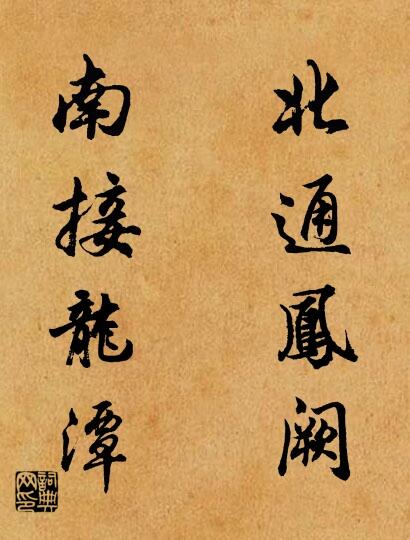 北通鳳阙
南接龍潭
詞典网印